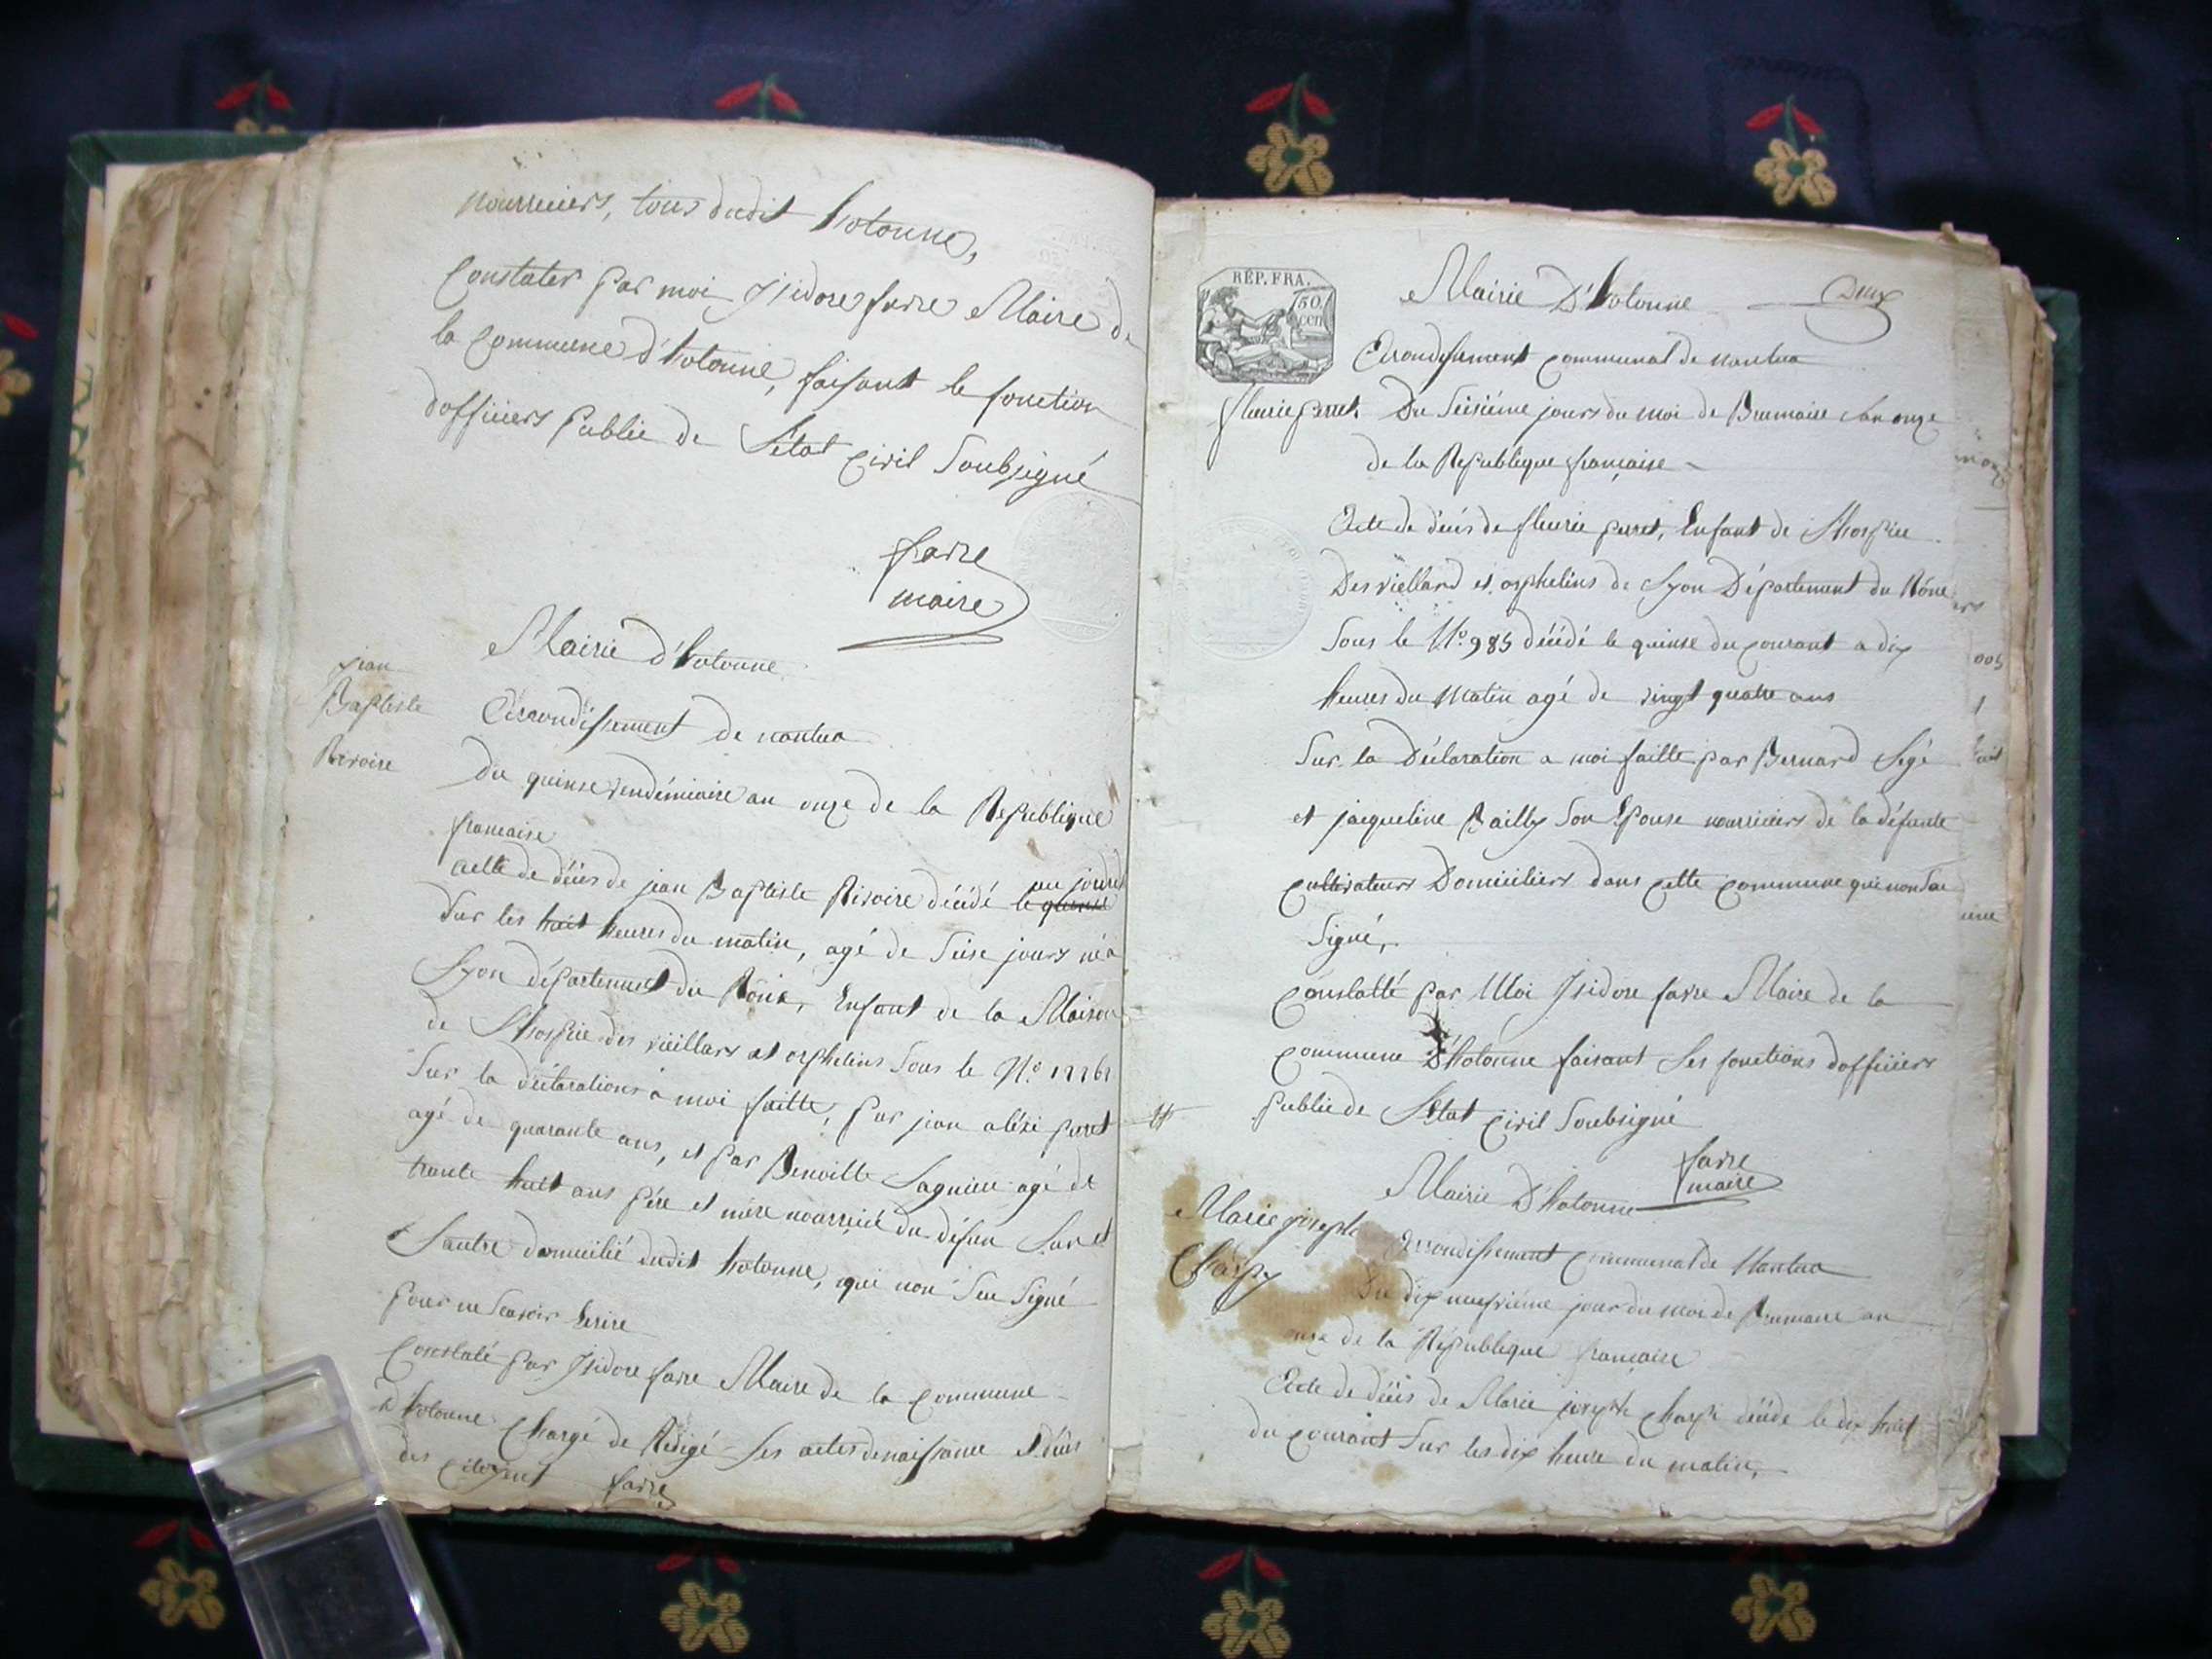 nourriciers, tous dudit hotonne,
Constater par moi Isidore favre Maire de
la Commune d'hotonne, faisant le fonction
d'officiers Public de L'état Civil Soubsigné
favre
maire
Mairie d'hotonne
jean
Baptiste
Rivoire
Arrondissement de nantua
du quinse vendémiaire an onze de la Republique
francaise
acte de décès de jean Baptiste Rivoire décédé le quinse au jourd
Sur les huit heures du matin, agé de Seise jours né a
Lyon département du Rône, Enfant de la Maison
de L'hospice des vieillars et orphelins Sous le N.º
Sur la déclarations à moi faitte, par jean alexi perret
agé de quarante ans, et par Benoitte Lagnieu agé de
trante huit ans père et mère nourricié du défun Lun et
Lautre domicilié dudit hotonne, qui non Seu Signé
pour ne Scavoir Ecrire
Constaté par Isidore favre Maire de la Commune
D'hotonne Chargé de Rédigé Les actes de naissance et décès
des Citoyens favre
RÉP. FRA.
50
cen
Mairie D'hotonne Deux
Arrondissement Communal de nantua
fleurie perret Du Seisiéme jours du moi de Brumaire Lan onze
de la Republique française
Acte de décès de fleurie perret, Enfant de Lhospice
Des viellard et orphelins de Lyon Département du Rône
Sous le N.º 985 décédé le quinse du Courant a dix
heures du Matin agé de vingt quatre ans
Sur la Déclaration a moi faitte par Bernard Ligé
et jacqueline Bailly Son Epouse nourriciers de la défunte
Cultivateurs Domiciliers dans Cette Commune qui non Su
Signé,
Constatté par Moi Isidore favre Maire de la
Commune D'hotonne faisant Les fonctions d'officiers
public de L'état Civil Soubsigné
favre
maire
Mairie D'hotonne
Marie joseph
Charpy
Arrondissement Communal de Nantua
Du dix neufviéme jour du moi de Brumaire an
onze de la République française
Acte de décès de Marie joseph Charpi décéde le dix huit
du Courant Sur les dix heure du matin,